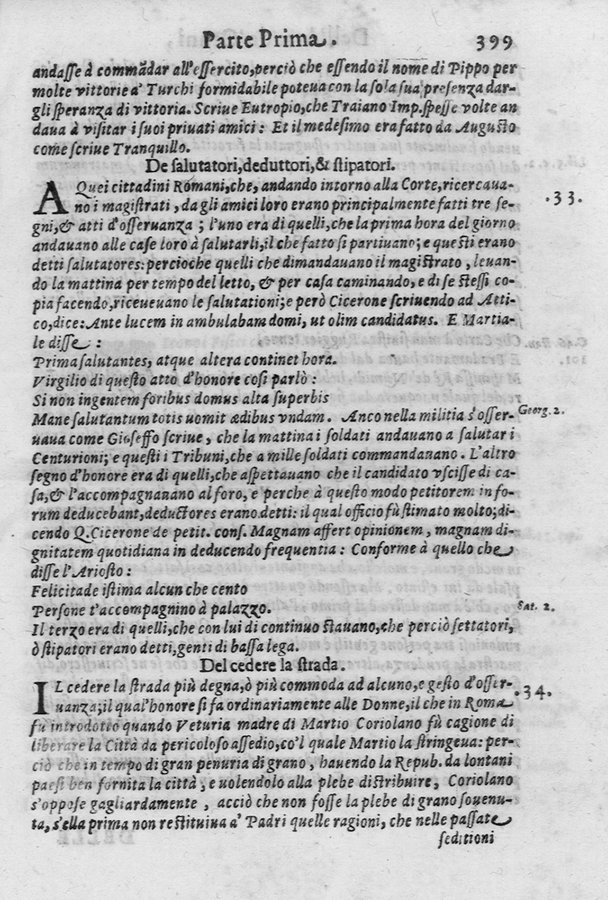 Parte Prima. 399
andasse à commãdar all'essercito, perciò che essendo il nome di Pippo per
molte vittorie a' Turchi formidabile poteua con la sola sua presenza dar-
gli speranza di vittoria. Scriue Eutropio, che Traiano Imp. spesse volte an
daua à visitar i suoi priuati amici: Et il medesimo era fatto da Augusto
come scriue Tranquillo.
De salutatori, deduttori, & stipatori.
A Quei cittadini Romani, che, andando intorno alla Corte, ricercaua- .33.
no i magistrati, da gli amici loro erano principalmente fatti tre se-
gni, & atti d'osseruanza; l'uno era di quelli, che la prima hora del giorno
andauano alle case loro à salutarli, il che fatto si partiuano; e questi erano
detti salutatores: percioche quelli che dimandauano il magistrato, leuan-
do la mattina per tempo del letto, & per casa caminando, e di se stessi co-
pia facendo, riceueuano le salutationi; e però Cicerone scriuendo ad Atti-
co, dice: Ante lucem in ambulabam domi, ut olim candidatus. E Martia-
le disse:
Prima salutantes, atque altera continet hora.
Virgilio di questo atto d'honore così parlò:
Si non ingentem foribus domus alta superbis
Mane salutantum totis uomit ædibus vndam. Anco nella militia s'osser- Georg. 2.
uaua come Gioseffo scriue, che la mattina i soldati andauano a salutar i
Centurioni; e questi i Tribuni, che a mille soldati commandauano. L'altro
segno d'honore era di quelli, che aspettauano che il candidato vscisse di ca-
sa, & l'accompagnauano al foro, e perche à questo modo petitorem in fo-
rum deducebant, deductores erano detti: il qual officio fù stimato molto; di-
cendo Q. Cicerone de petit. cons. Magnam affert opinionem, magnam di-
gnitatem quotidiana in deducendo frequentia: Conforme à quello che
disse l'Ariosto:
Felicitade istima alcun che cento
Persone t'accompagnino à palazzo. Sat. 2.
Il terzo era di quelli, che con lui di continuo stauano, che perciò settatori,
ò stipatori erano detti, genti di bassa lega.
Del cedere la strada.
IL cedere la strada più degna, ò più commoda ad alcuno, e gesto d'osser- .34.
uanza; il qual'honore si fa ordinariamente alle Donne, il che in Roma
fù introdotto quando Veturia madre di Martio Coriolano fù cagione di
liberare la Città da pericoloso assedio, co'l quale Martio la stringeua: per-
ciò che in tempo di gran penuria di grano, hauendo la Repub. da lontani
paesi ben fornita la città, e uolendolo alla plebe distribuire, Coriolano
s'oppose gagliardamente, acciò che non fosse la plebe di grano souenu-
ta, s'ella prima non restituiua a' Padri quelle ragioni, che nelle passate
seditioni